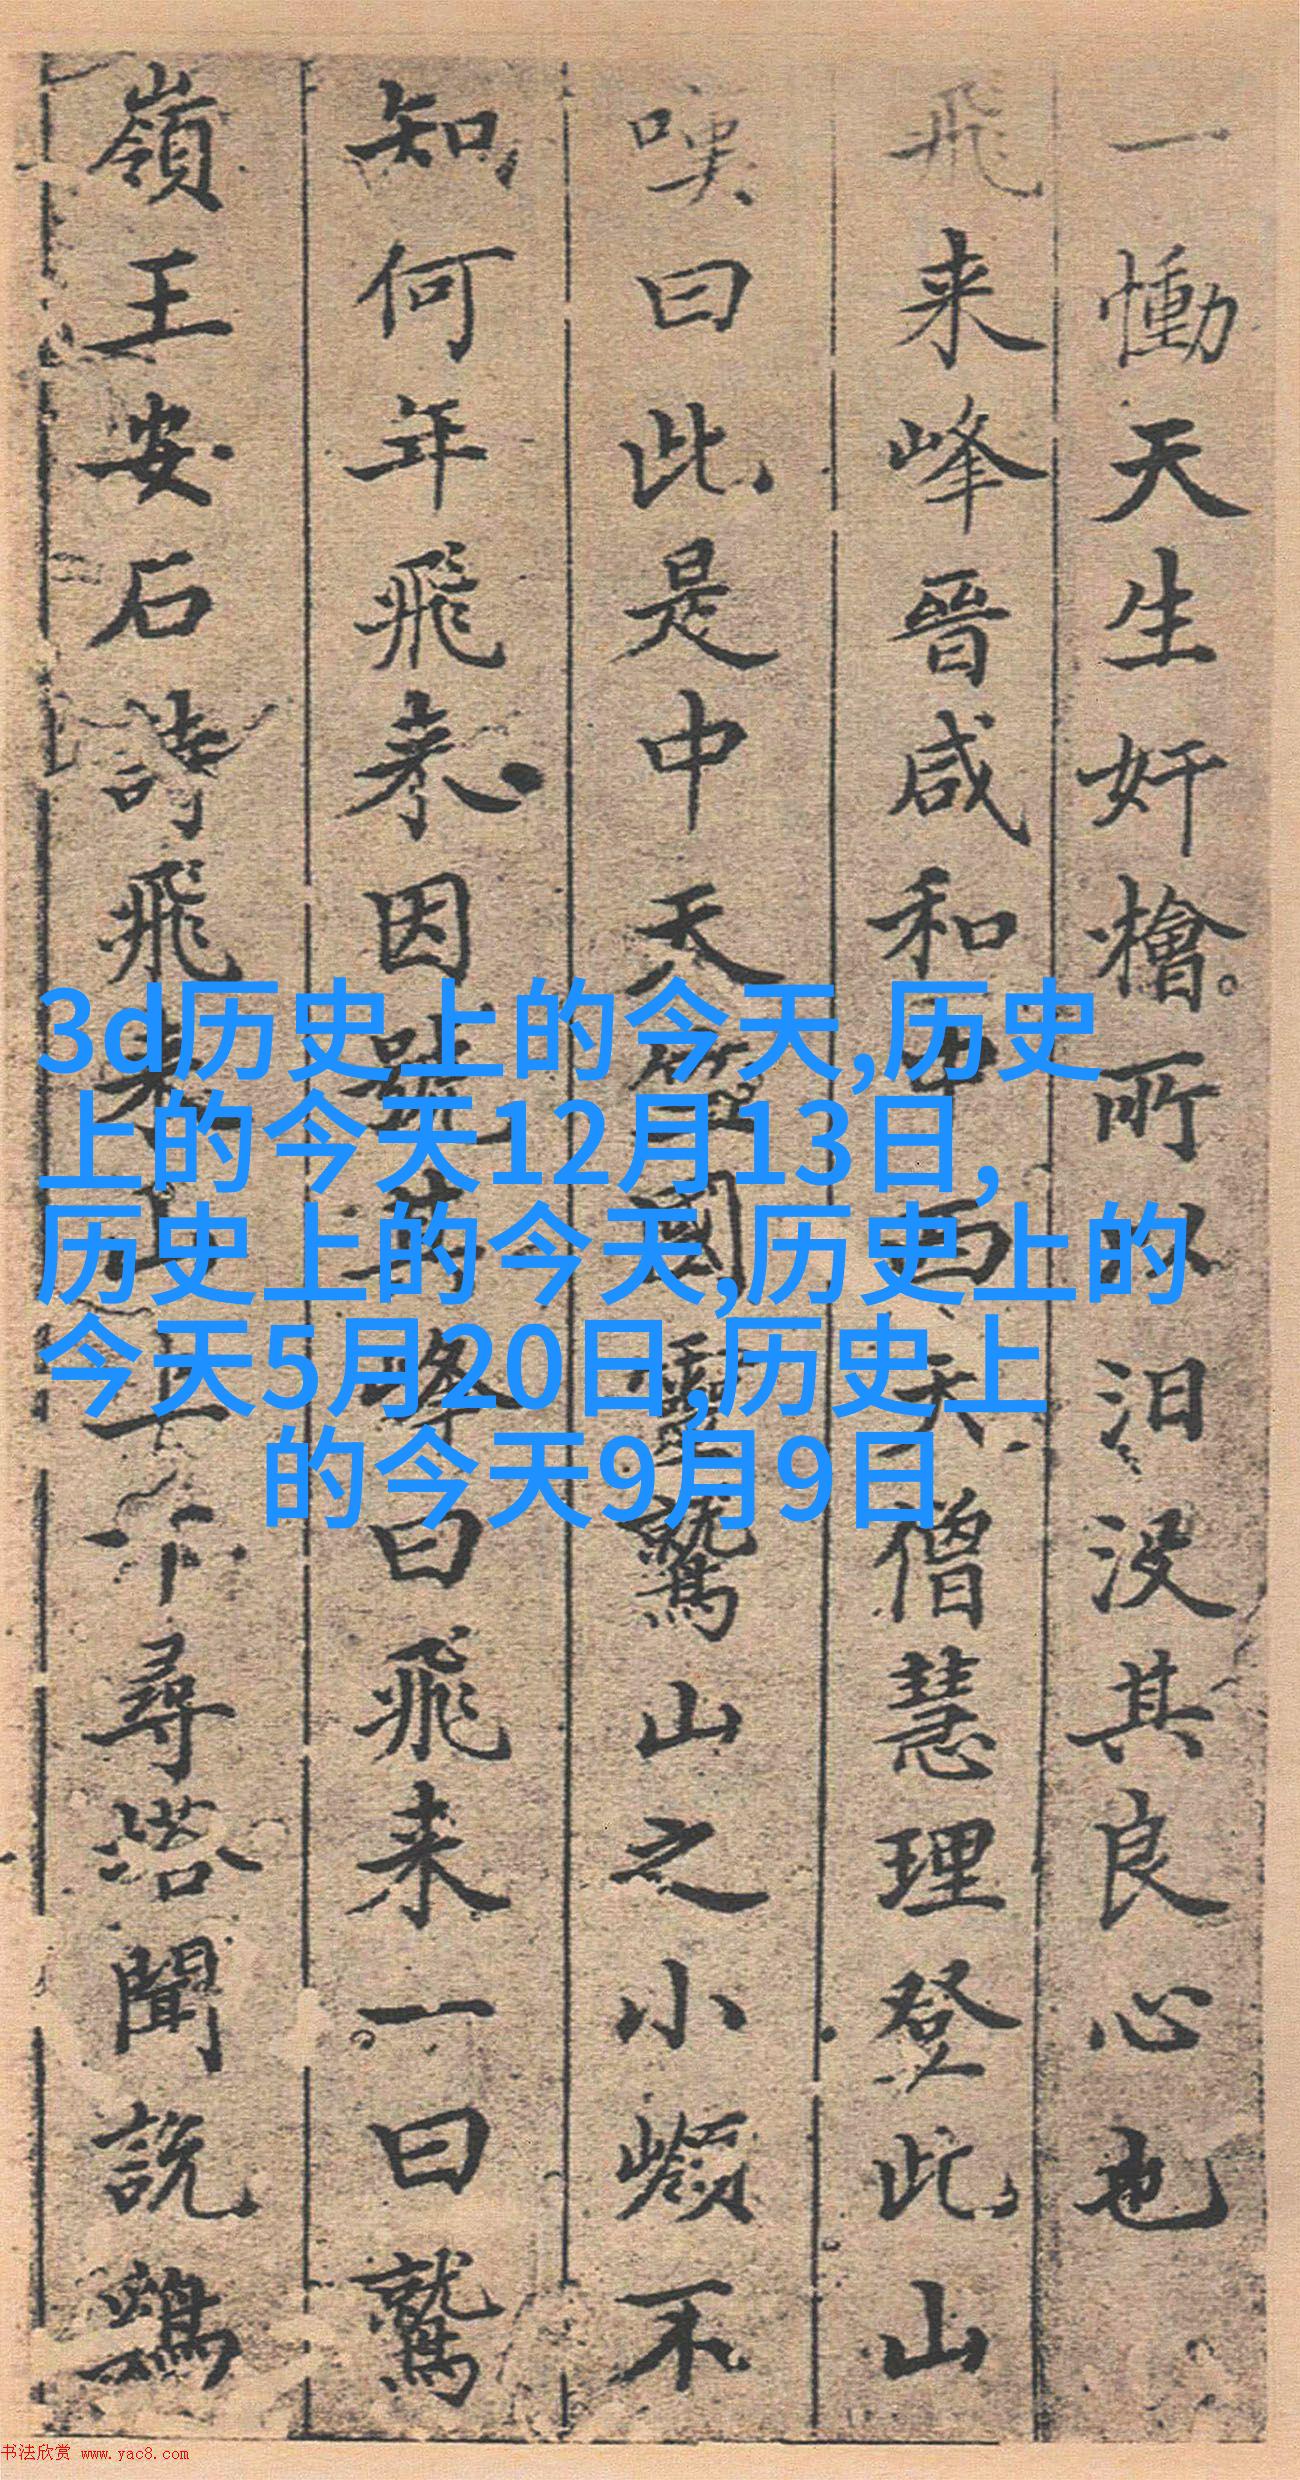 一慟天生奸檜所以汨没其良心也
飛来峰晉咸和中西天僧慧理登此山
嘆曰此是中天竺國靈鷲山之小嶺不
知何年飛来因號其峰曰飛来一曰鷲
嶺王安石詩飛来山上千尋塔聞說鷄
3d历史上的今天,历史
上的今天12月13日,
历史上的今天,历史上的
今天5月20日,历史上
的今天9月9日
书法欣赏 www.yac8.com